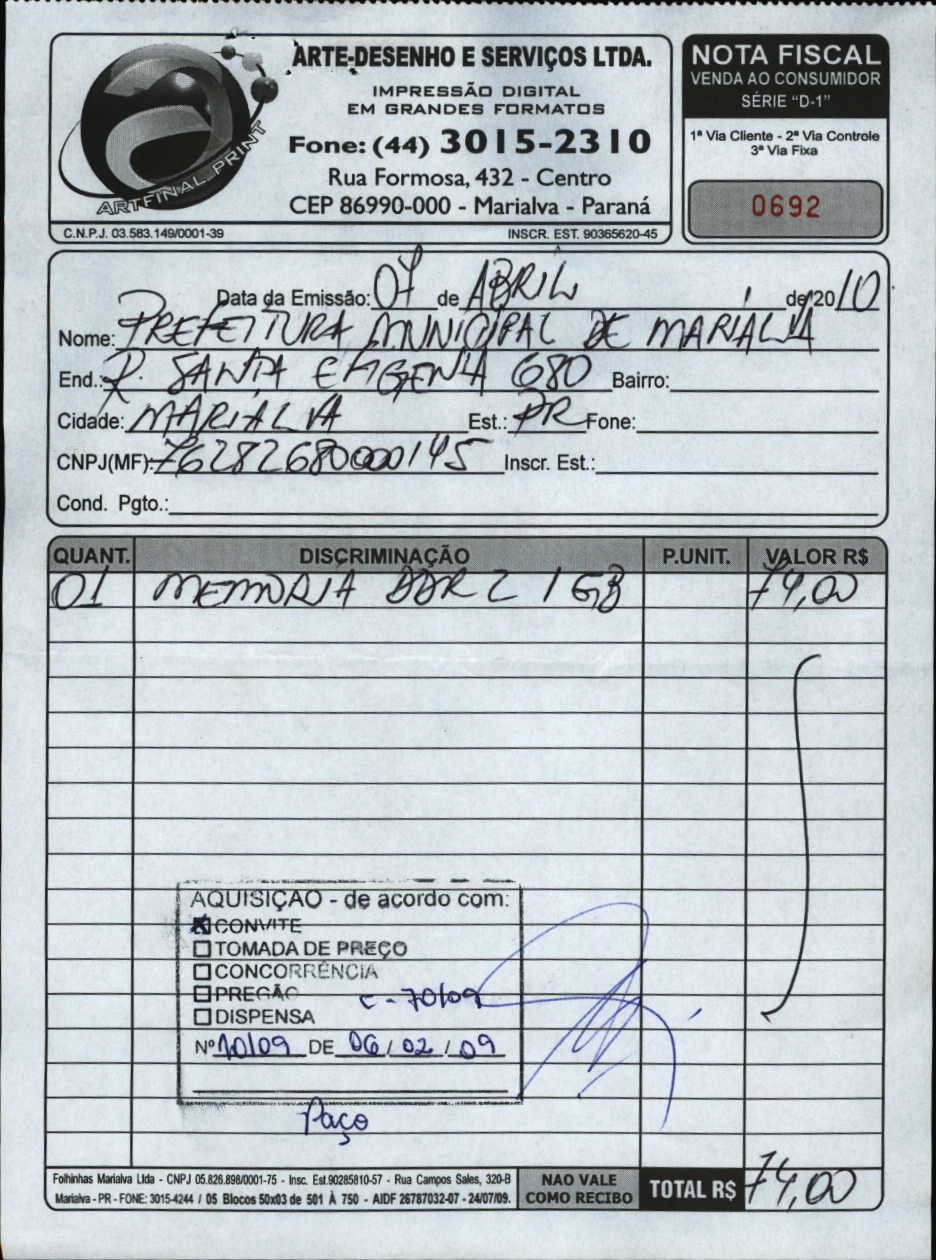 ARTE-DESENHO E SERVIÇOS LTDA.
IMPRESSÃO DIGITAL
EM GRANDES FORMATOS
Fone: (44) 3015-2310
Rua Formosa, 432 - Centro
CEP 86990-000 - Marialva - Paraná
ARTFINAL PRINT
C.N.P.J. 03.583.149/0001-39 INSCR. EST. 90365620-45
NOTA FISCAL
VENDA AO CONSUMIDOR
SÉRIE "D-1"
1ª Via Cliente - 2ª Via Controle
3ª Via Fixa
0692
Data da Emissão: 07 de ABRIL de 2010
Nome: PREFEITURA MUNICIPAL DE MARIALVA
End.: R. SANTA EFIGENIA 680 Bairro:
Cidade: MARIALVA Est.: PR Fone:
CNPJ(MF): 76282680000145 Inscr. Est.:
Cond. Pgto.:
QUANT. DISCRIMINAÇÃO P.UNIT. VALOR R$
01 MEMORIA DDR2 1GB 74,00
AQUISIÇÃO - de acordo com:
CONVITE
TOMADA DE PREÇO
CONCORRÊNCIA
PREGÃO C-70/09
DISPENSA
Nº 10/09 DE 06/02/09
Paço
Folhinhas Marialva Ltda - CNPJ 05.826.898/0001-75 - Insc. Est.90285810-57 - Rua Campos Sales, 320-B
Marialva - PR - FONE: 3015-4244 / 05 Blocos 50x03 de 501 À 750 - AIDF 26787032-07 - 24/07/09.
NAO VALE
COMO RECIBO
TOTAL R$ 74,00